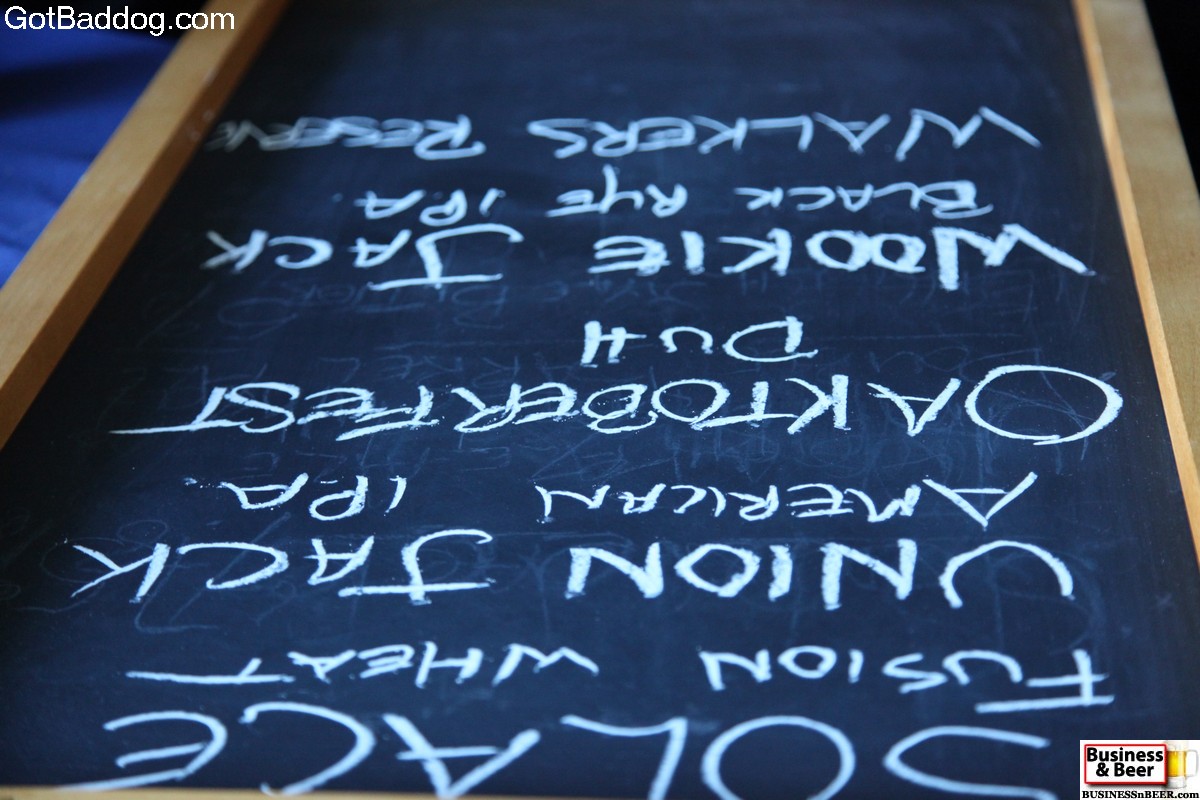 GotBaddog.com
SOLACE
FUSION WHEAT
UNION JACK
AMERICAN IPA
OAKTOBERFEST
DUH
WOOKIE JACK
BLACK RYE IPA
WALKERS RESERVE
Business
& Beer
BUSINESSnBEER.com